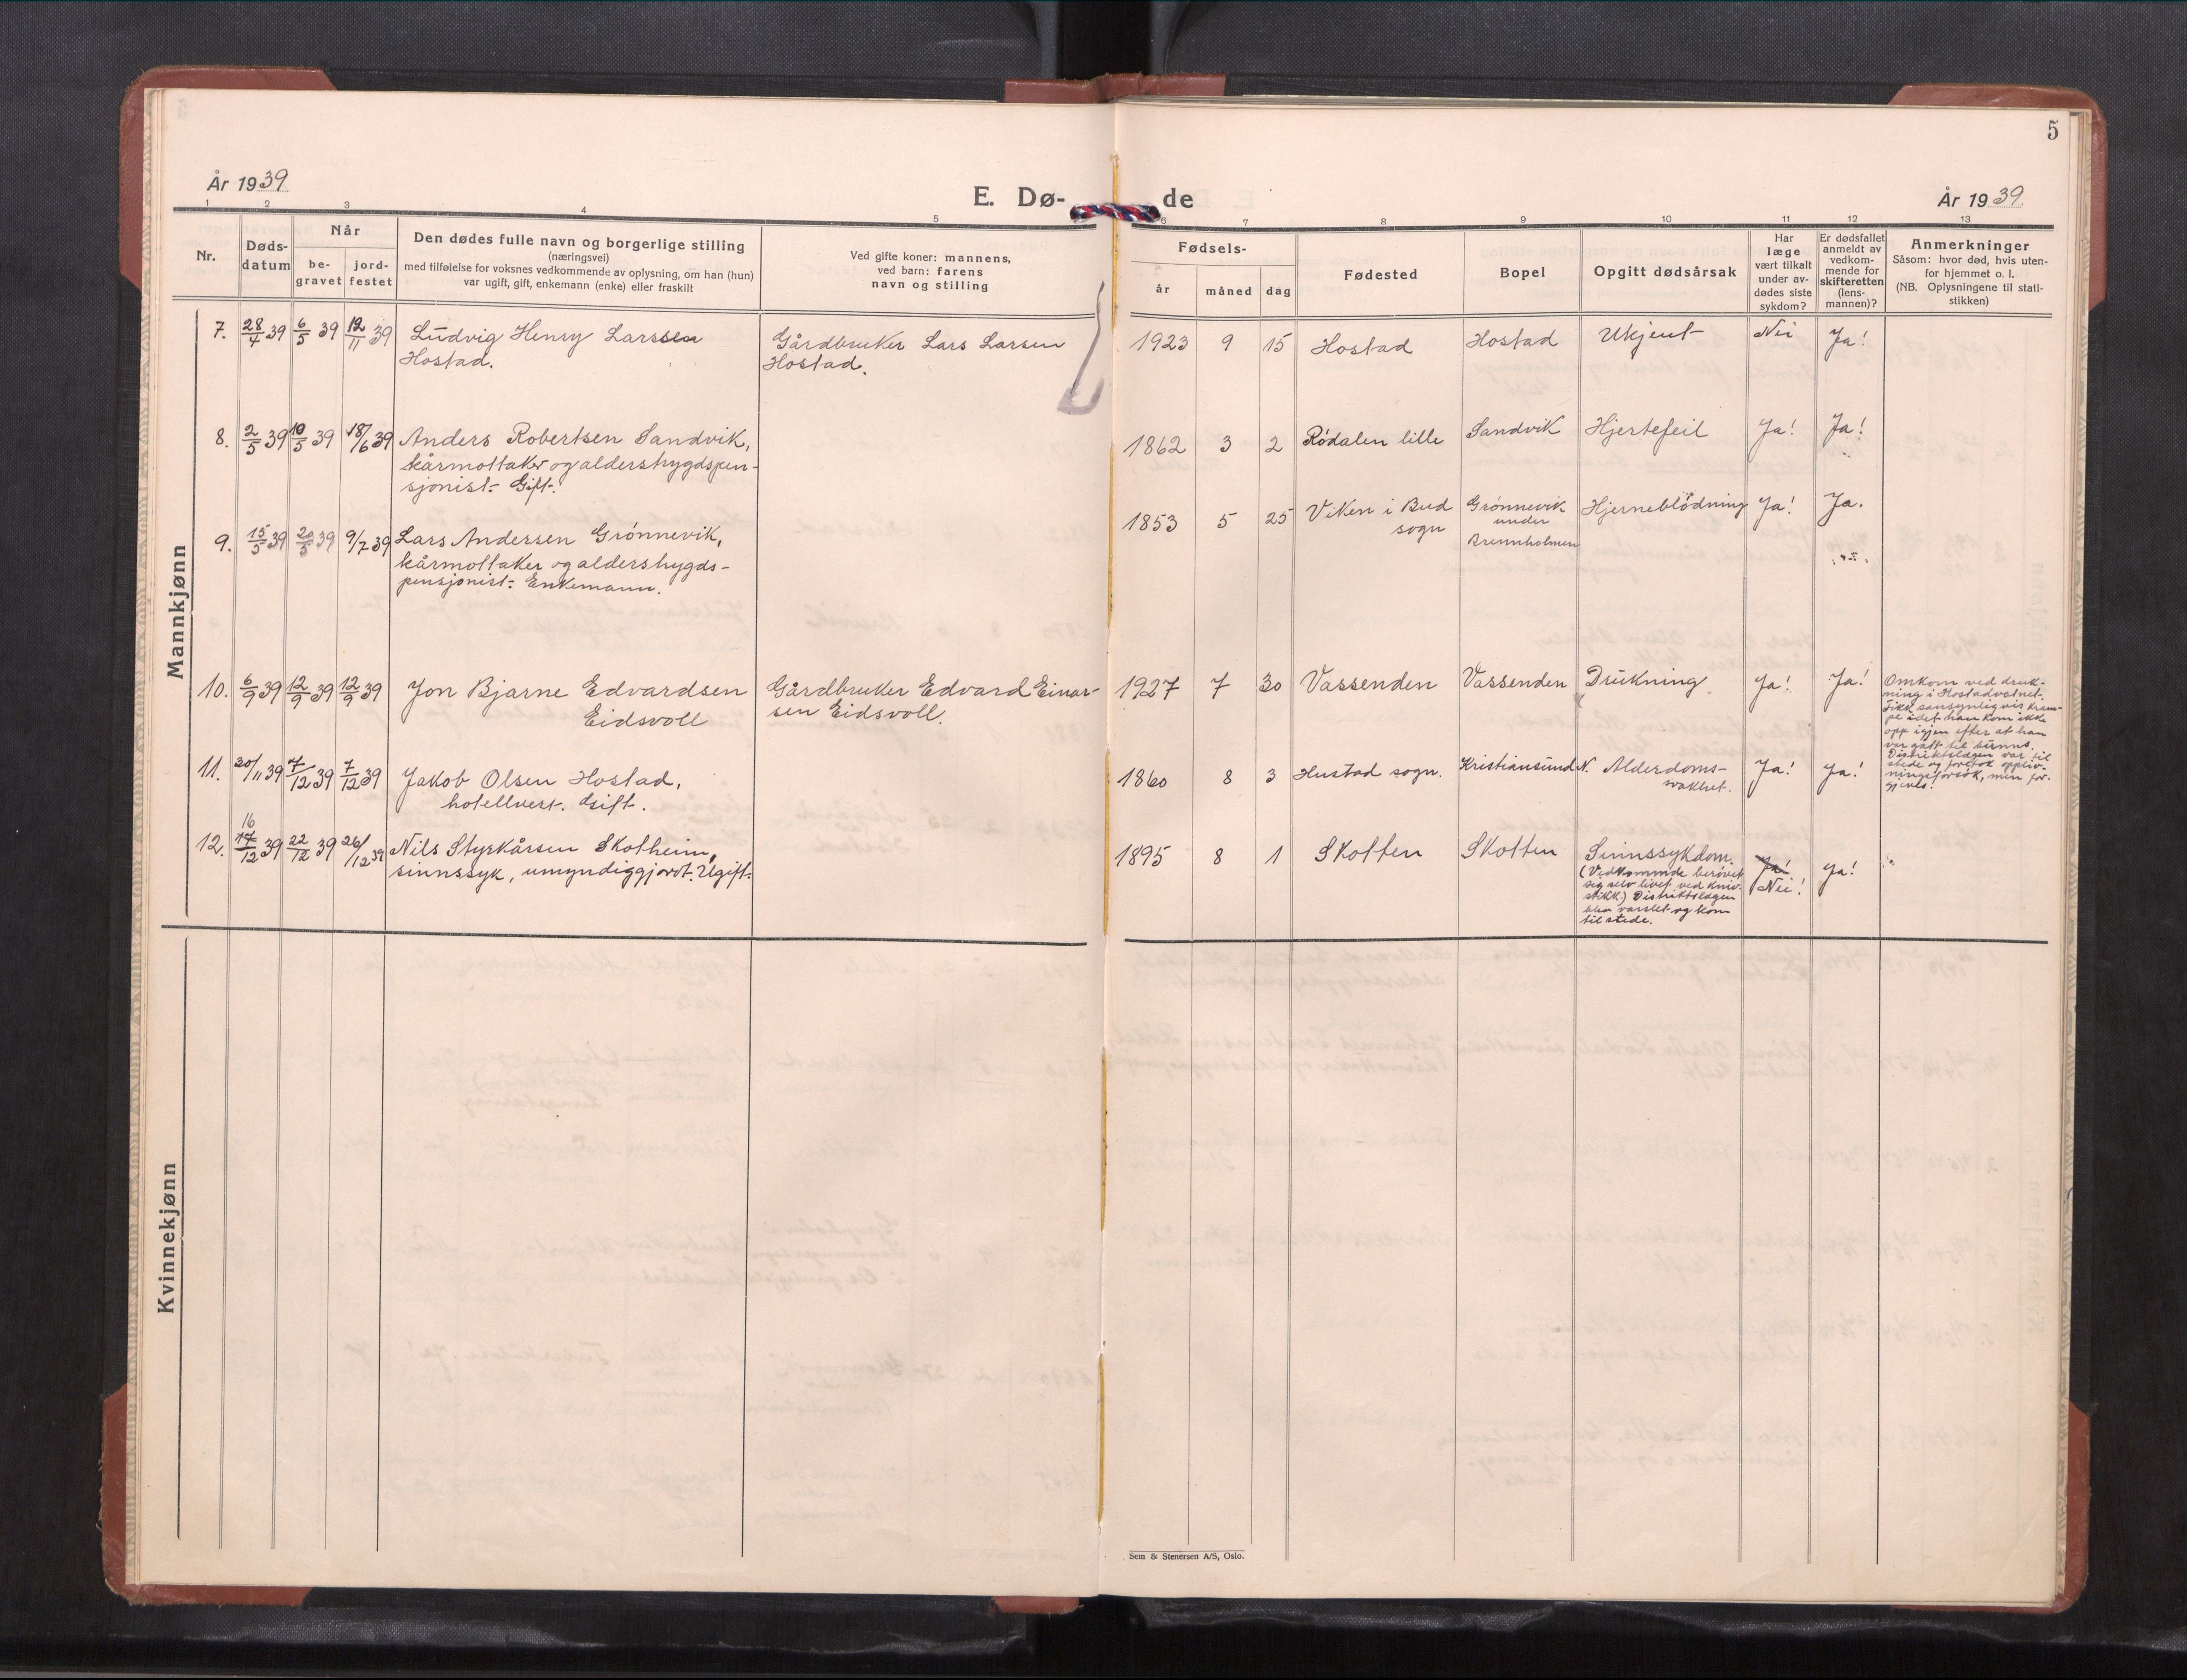 5
År 1939
E. Dø-
de
År 1939.
1 2 3 4 5 6 7 8 9 10 11 12 13
Nr.
Døds-
datum
Når
be-
gravet
jord-
festet
Den dødes fulle navn og borgerlige stilling
(næringsvei)
med tilføielse for voksnes vedkommende av oplysning, om han (hun)
var ugift, gift, enkemann (enke) eller fraskilt
Ved gifte koner: mannens,
ved barn: farens
navn og stilling
Fødsels-
år måned dag
Fødested
Bopel
Opgitt dødsårsak
Har
læge
vært tilkalt
under av-
dødes siste
sykdom?
Er dødsfallet
anmeldt av
vedkom-
mende for
skifteretten
(lens-
mannen)?
Anmerkninger
Såsom: hvor død, hvis uten-
for hjemmet o. l.
(NB. Oplysningene til stati-
stikken)
Mannkjønn
7. 28/4 39 6/5 39 12/11 39 Ludvig Henry Larssen
Hostad.
Gårdbruker Lars Larsen
Hostad.
1923 9 15 Hostad Hostad Ukjent Nei Ja!
8. 2/5 39 10/5 39 18/6 39 Anders Robertsen Sandvik,
kårmottaker og alderstrygdspen-
sjonist. Gift.
1862 3 2 Rødalen lille Sandvik Hjertefeil Ja! Ja!
9. 15/5 39 20/5 39 9/7 39 Lars Andersen Grønnevik,
kårmottaker og alderstrygds-
pensjonist. Enkemann.
1853 5 25 Viken i Bud
sogn
Grønnevik
under
Brennholmen
Hjerneblødning Ja! Ja.
10. 6/9 39 12/9 39 12/9 39 Jon Bjarne Edvardsen
Eidsvoll
Gårdbruker Edvard Einar-
sen Eidsvoll.
1927 7 30 Vassenden Vassenden Drukning Ja! Ja!
Omkom ved druk-
ning i Hostadvatnet.
Fikk sansynlegvis kram-
pe idet han kom ikke
opp igjen efter at han
var gått til bunns.
Distriktslægen var til
stede og foretok oppliv-
ningsforsøk, men for-
gjeves.
11. 30/11 39 7/12 39 7/12 39 Jakob Olsen Hostad,
hotellvert. Gift.
1860 8 3 Hustad sogn. Kristiansund N. Alderdoms-
svakhet.
Ja! Ja!
16
12. 17/12 39 22/12 39 26/12 39 Nils Styrkårsen Skotheim,
sinnssyk, umyndiggjort. Ugift.
1895 8 1 Skotten Skotten Sinnssykdom.
(Vedkommende berøvet
seg selv livet ved kniv-
stikk.) Distriktslægen
blev varslet og kom
til stede.
Ja!
Nei!
Ja!
Kvinnekjønn
Sem & Stenersen A/S, Oslo.